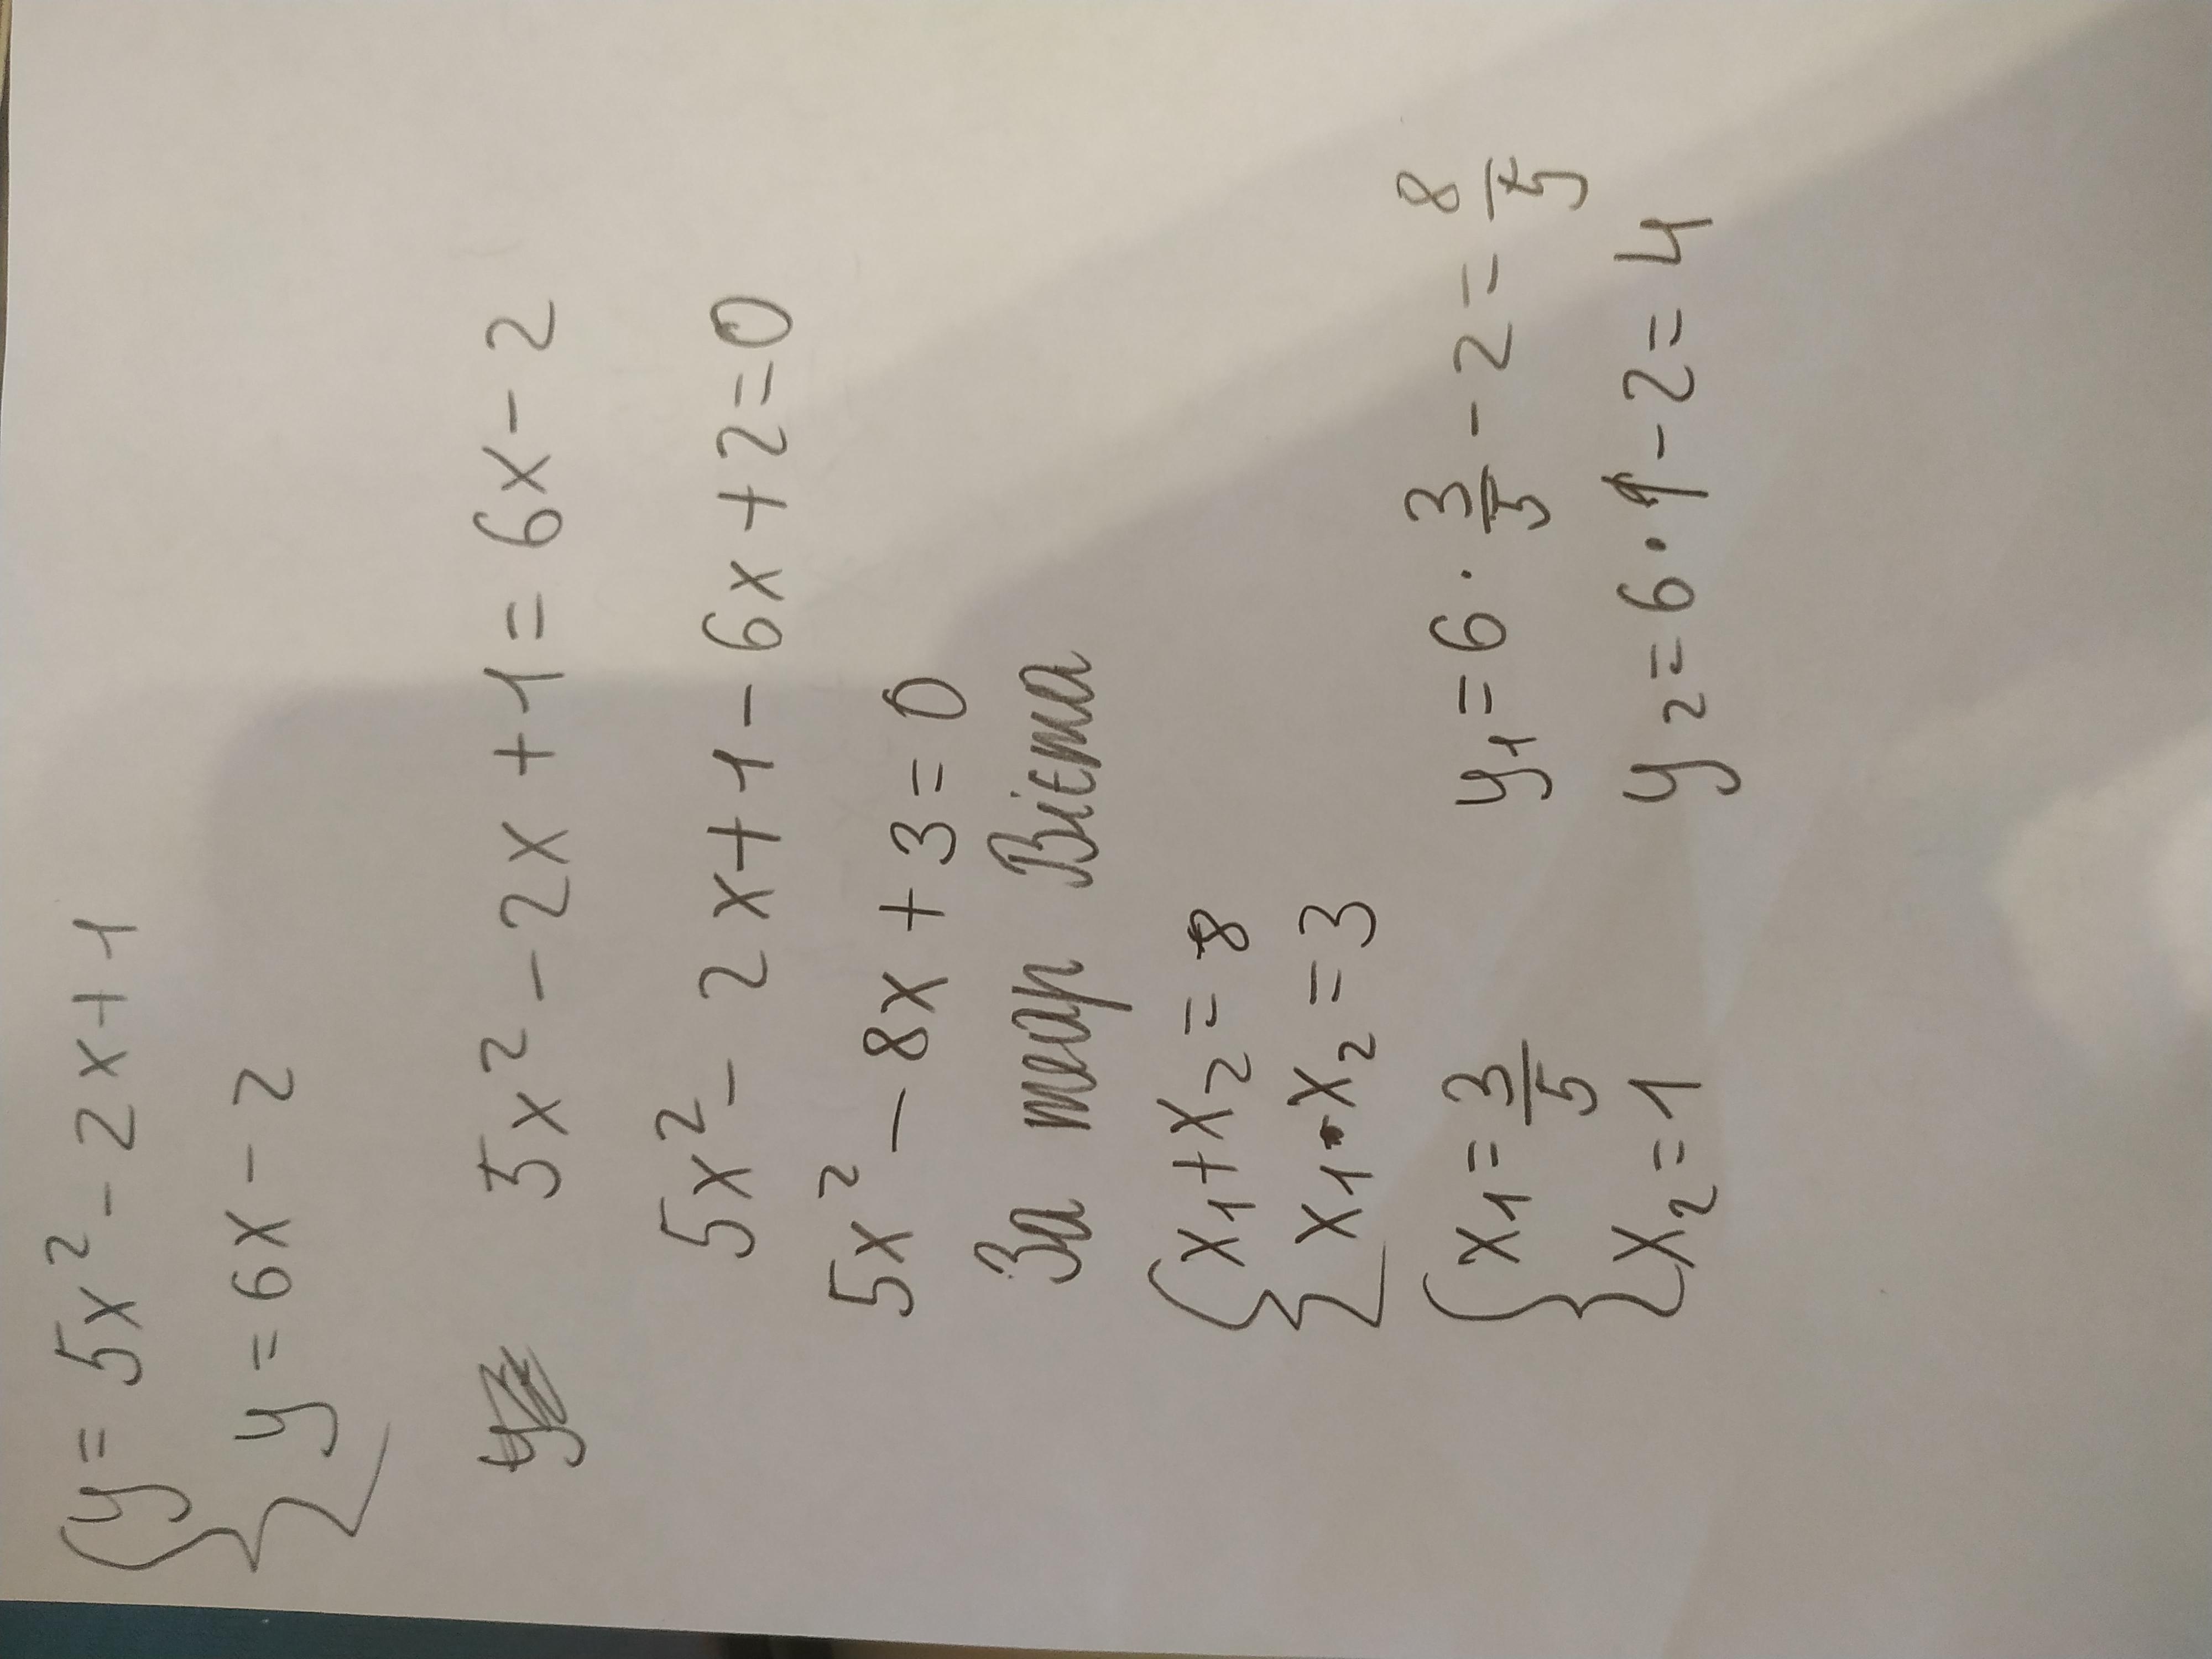 { y = 5x² - 2x + 1
y = 6x - 2
5x² - 2x + 1 = 6x - 2
5x² - 2x + 1 - 6x + 2 = 0
5x² - 8x + 3 = 0
За теор Вієта
{ x₁ + x₂ = 8
x₁ · x₂ = 3
{ x₁ = 3/5 y₁ = 6 · 3/5 - 2 = 8/5
x₂ = 1 y₂ = 6 · 1 - 2 = 4